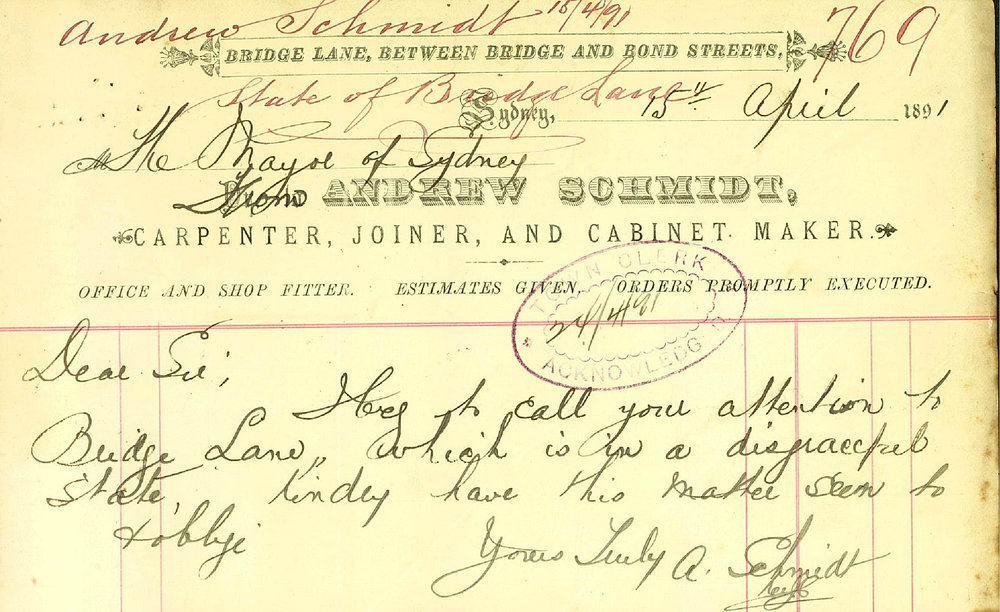 Andrew Schmidt 15/4/91
769
BRIDGE LANE, BETWEEN BRIDGE AND BOND STREETS,
State of Bridge Lane
Sydney, 15th April 1891
The Mayor of Sydney
From ANDREW SCHMIDT,
CARPENTER, JOINER, AND CABINET MAKER.
OFFICE AND SHOP FITTER. ESTIMATES GIVEN. ORDERS PROMPTLY EXECUTED.
TOWN CLERK
24/4/91
ACKNOWLEDG'D
Dear Sir,
I beg to call your attention to
Bridge Lane, which is in a disgraceful
state, kindly have this matter seen to
& oblige
Yours Truly A. Schmidt